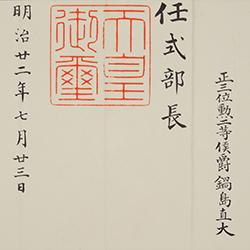 正三位勲二等侯爵鍋島直大
任式部長
天皇
御璽
明治廿二年七月廿三日